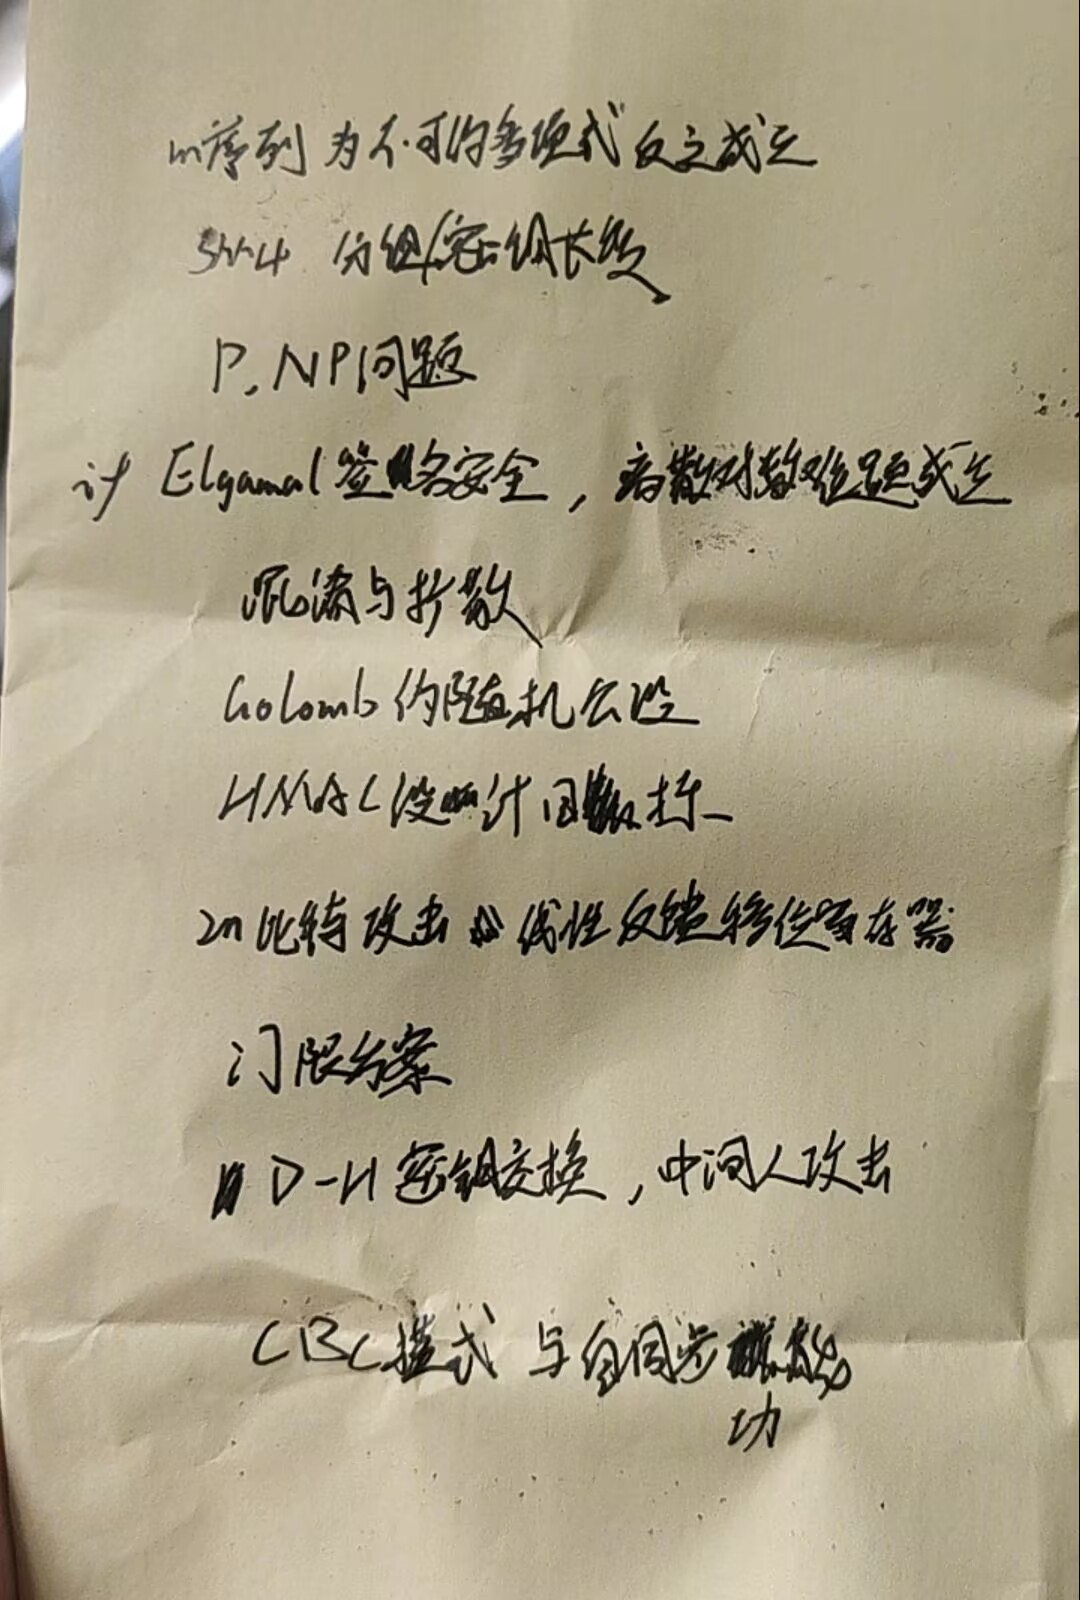 m序列 为不可约多项式 反之成立
SM4 分组/密钥长度
P.NP问题
讨 Elgamal签名安全，离散对数难题成立
混淆与扩散
Golomb伪随机公设
HMAC设计目标
2n比特攻击 线性反馈移位寄存器
门限方案
D-H密钥交换，中间人攻击
CBC模式 与自同步
功